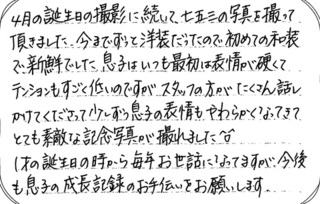 4月の誕生日の撮影に続いて、七五三の写真を撮って
頂きました。今までずっと洋装だったので初めての和装
で、新鮮でした。息子はいつも最初は表情が硬くて
テンションもすごく低いのですが、スタッフの方が たくさん話し
かけてくださって少しずつ息子の表情もやわらかくなってきて
とても素敵な記念写真が撮れました♡
1才の誕生日の時から毎年お世話になってますが、今後
も息子の成長記録のお手伝いをお願いします。